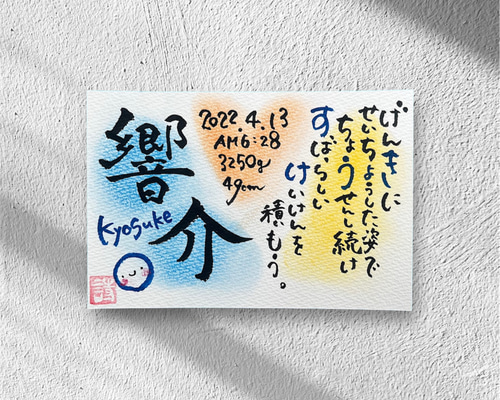 げんきに
せいちょうした姿で
ちょうせんし続け
すばらしい
けいけんを
積もう。
2022.4.13
AM6:28
3250g
49cm
響介
Kyosuke
詩